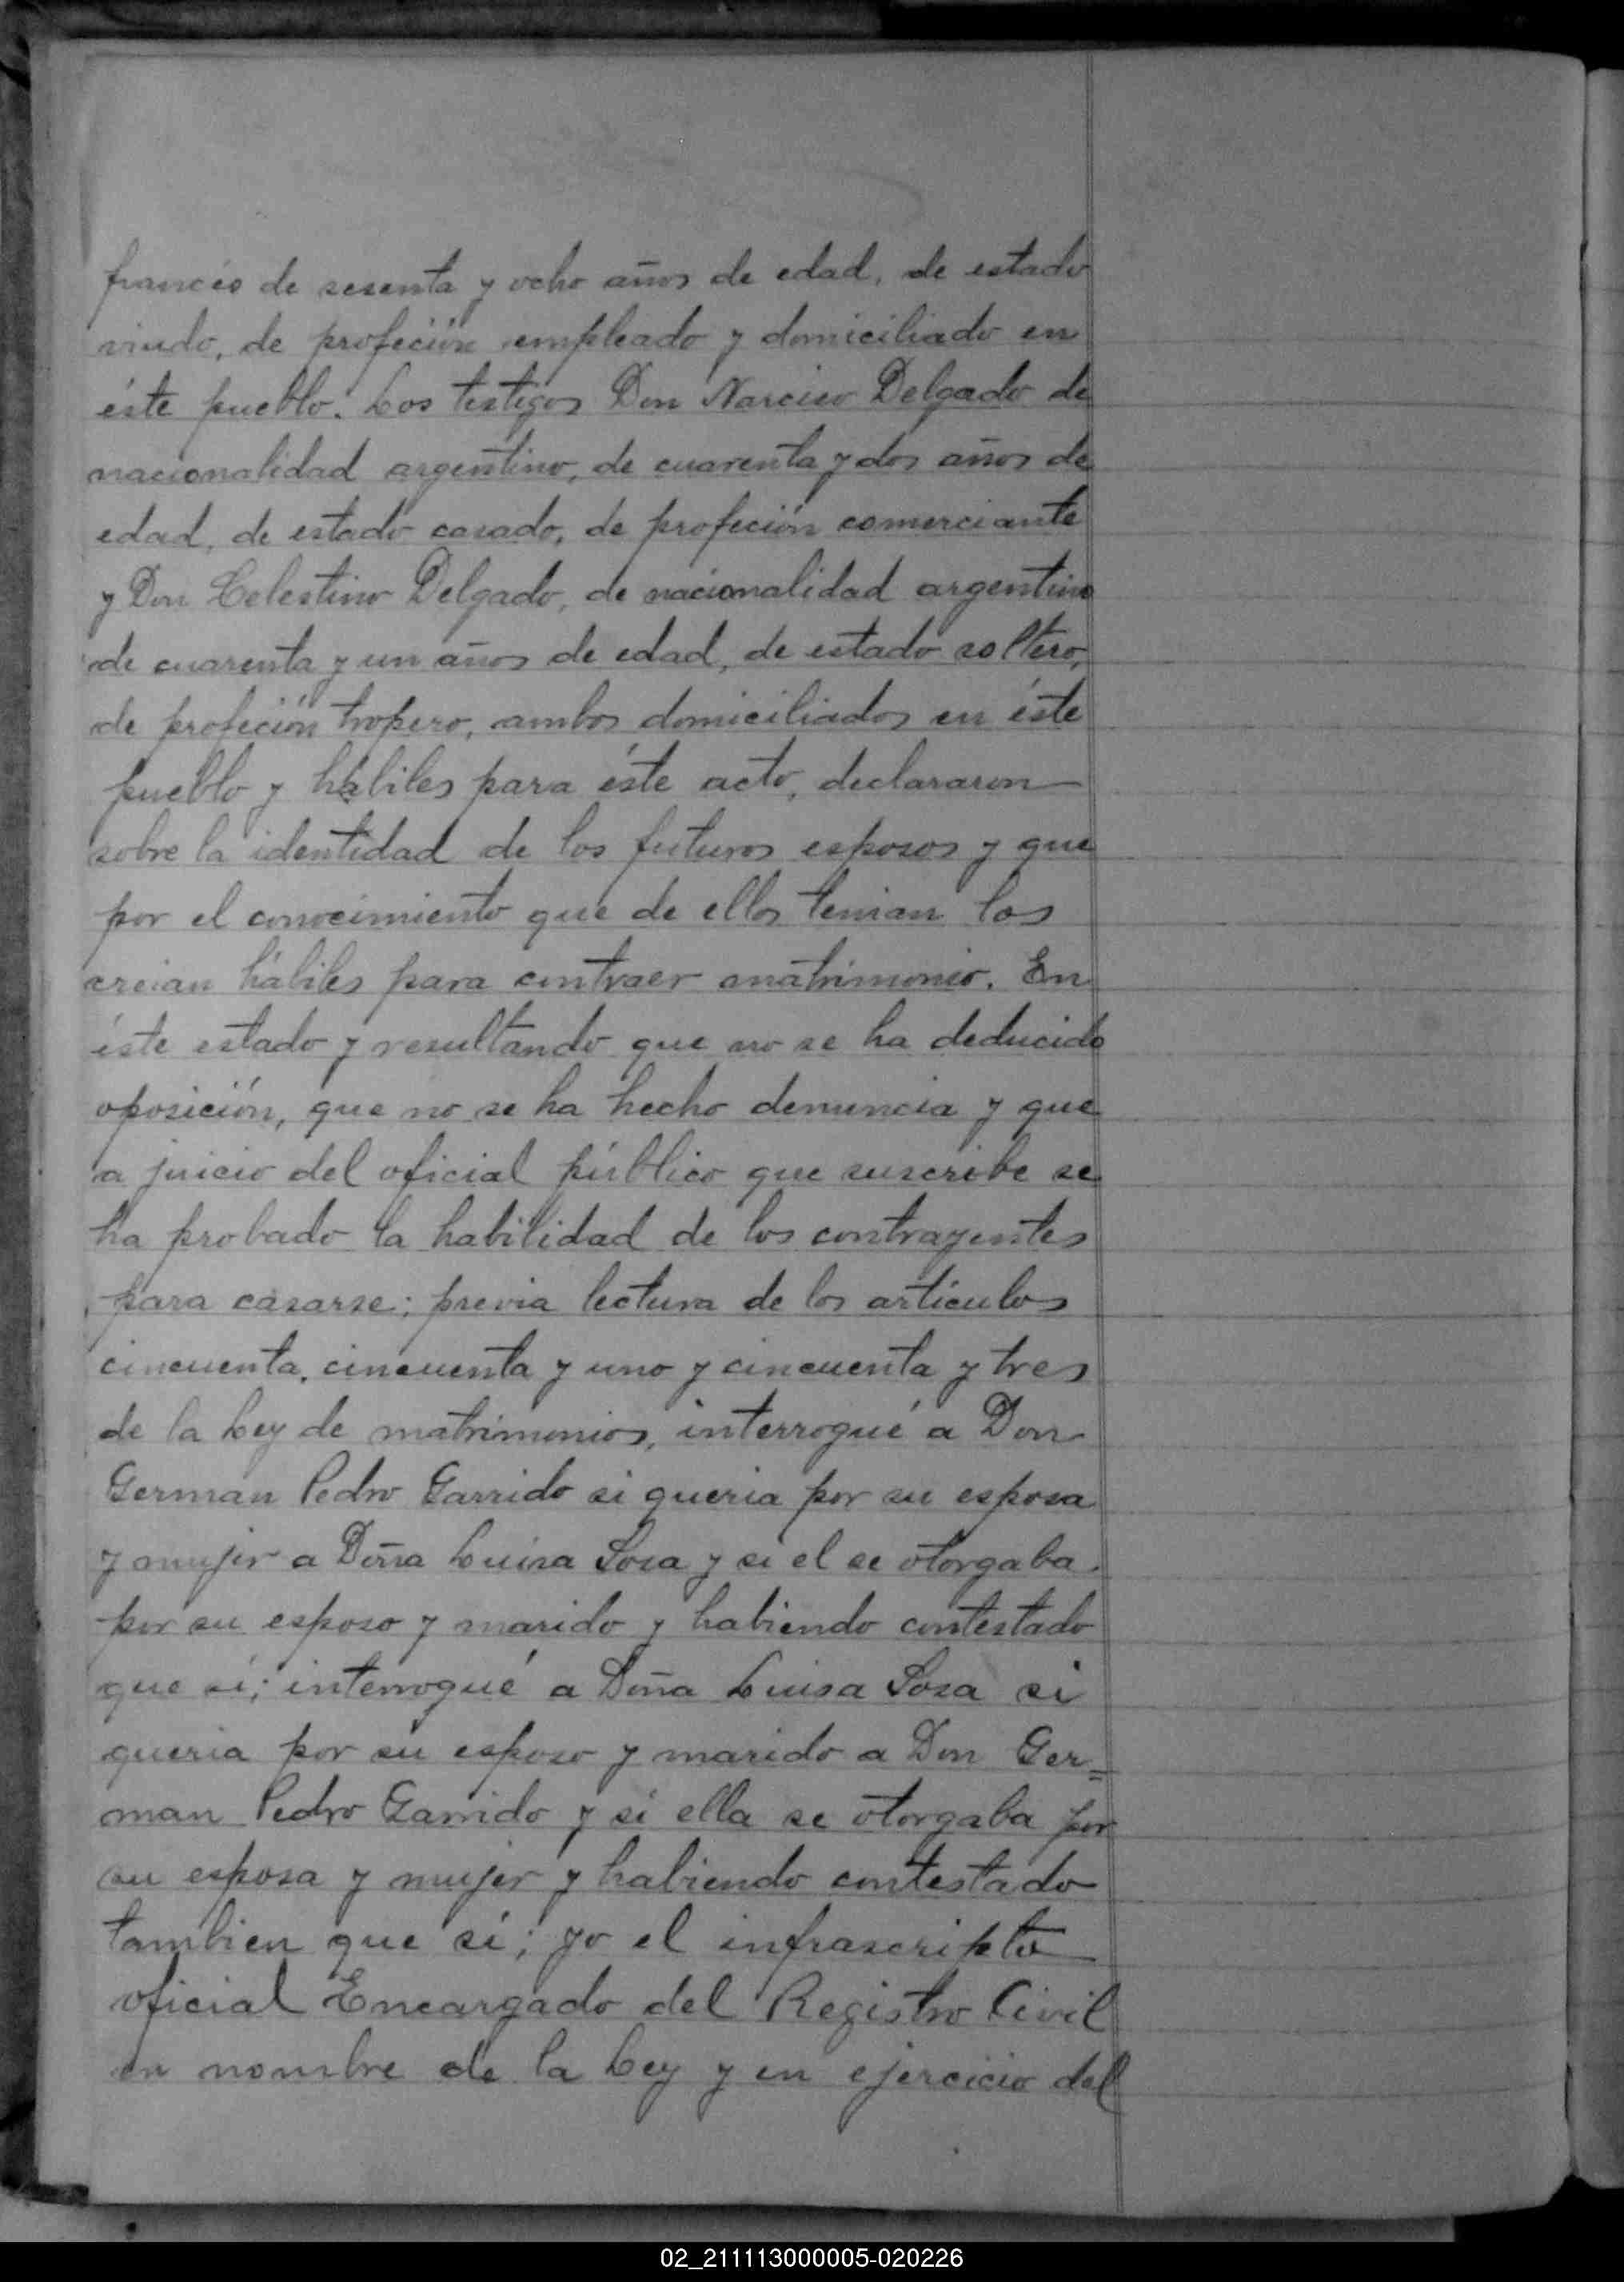 francés de sesenta y ocho años de edad, de estado
viudo, de profeción empleado y domiciliado en
éste pueblo. Los testigos Don Narciso Delgado de
nacionalidad argentino, de cuarenta y dos años de
edad, de estado casado, de profeción comerciante
y Don Celestino Delgado, de nacionalidad argentino
de cuarenta y un años de edad, de estado soltero,
de profeción tropero, ambos domiciliados en éste
pueblo y hábiles para éste acto, declararon
sobre la identidad de los futuros esposos y que
por el conocimiento que de ellos tenian los
creian hábiles para contraer matrimonio. En
éste estado y resultando que no se ha deducido
oposición, que no se ha hecho denuncia y que
a juicio del oficial público que suscribe se
ha probado la habilidad de los contrayentes
para casarse; previa lectura de los artículos
cincuenta, cincuenta y uno y cincuenta y tres
de la Ley de matrimonios, interrogué a Don
German Pedro Garrido si queria por su esposa
y mujer a Doña Luisa Sosa y si el se otorgaba
por su esposo y marido y habiendo contestado
que sí; interrogué a Doña Luisa Sosa si
queria por su esposo y marido a Don Ger=
man Pedro Garrido y si ella se otorgaba por
su esposa y mujer y habiendo contestado
tambien que sí; yo el infrascripto
oficial Encargado del Registro Civil
en nombre de la Ley y en ejercicio del
02_211113000005-020226